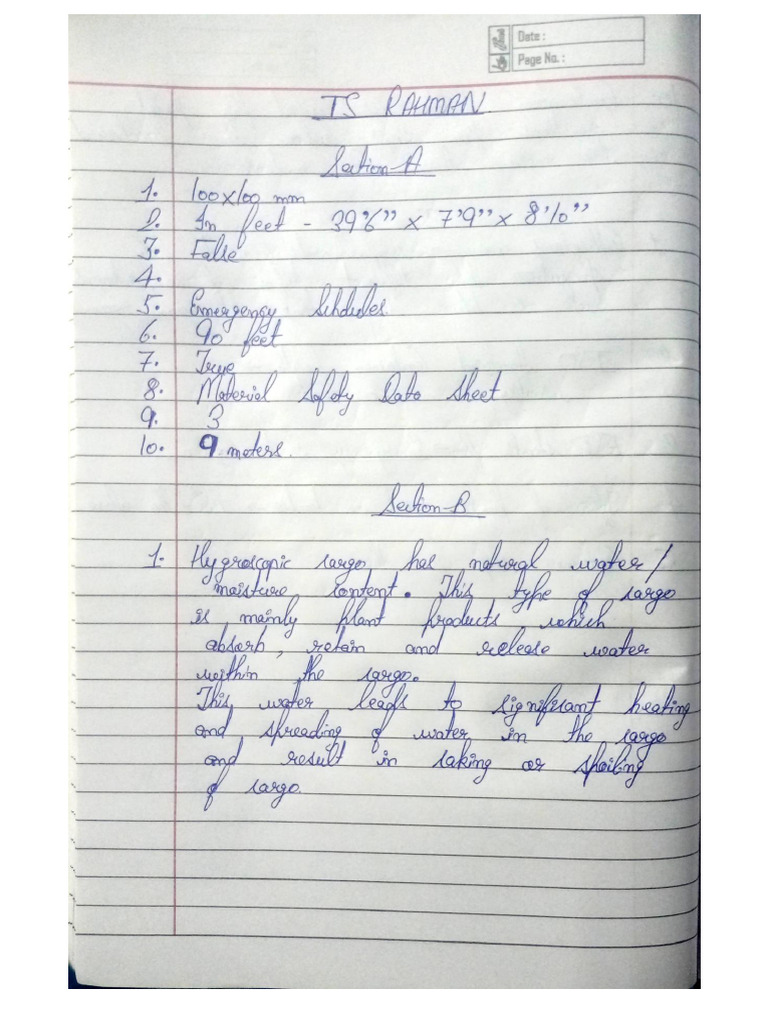 Date :
Page No. :
TS RAHMAN
Section-A
1. 100x100 mm
2. In feet - 39'6" x 7'9" x 8'10"
3. False
4.
5. Emergency Schdules.
6. 90 feet
7. True
8. Material Safety Data Sheet
9. 3
10. 9 meters.
Section-B
1. Hygroscopic cargo has natural water/
moisture content. This type of cargo
is mainly plant products which
absorb, retain and release water
within the cargo.
This water leads to significant heating
and spreading of water in the cargo
and result in caking or spoiling
of cargo.